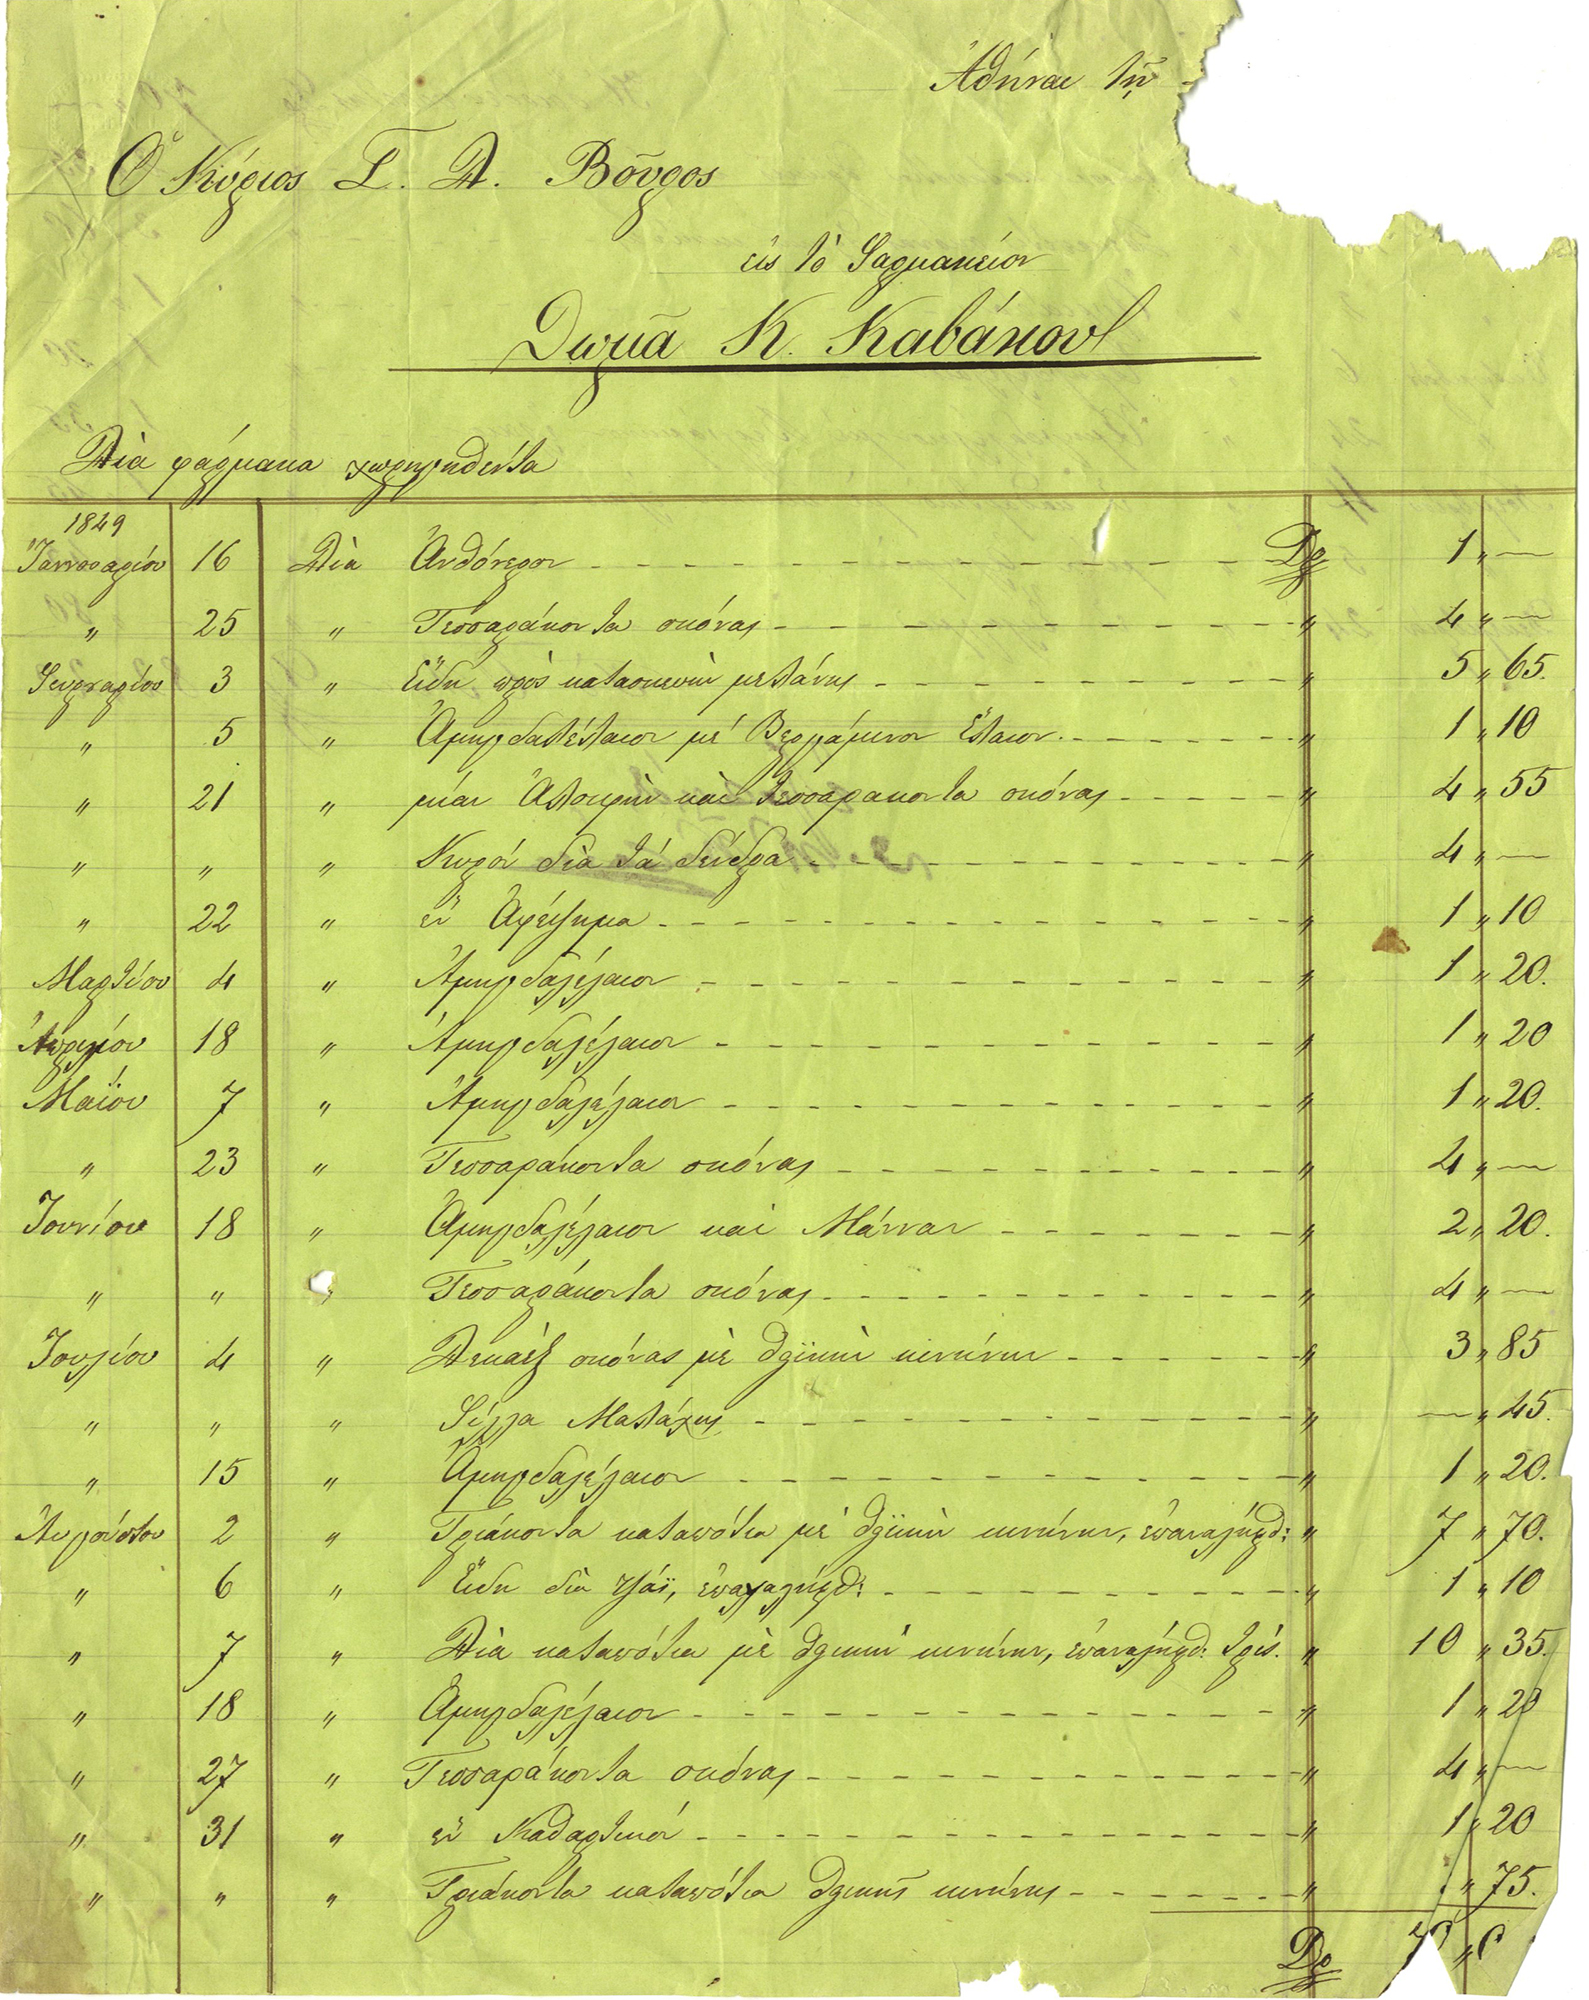 Ἀθῆναι τῇ
Ὁ Κύριος Σ. Δ. Βοῦρος
εἰς τὸ Φαρμακεῖον
Θωμᾶ Κ. Καβάκου
Διὰ φάρμακα χωρηγηθέντα
1849
Ἰαννουαρίου 16 Διὰ Ἀνθόνερον Δρ 1 " —
" 25 " Τεσσαράκοντα σκόνας " 4 " —
Φευρουαρίου 3 " Εἴδη πρὸς κατασκευὴν μελάνης " 5 " 65.
" 5 " Ἀμυγδαλέλαιον μὲ Βεργάμινον Ἔλαιον " 1 " 10
" 21 " μίαν Ἀλοιφὴν καὶ τεσσαρακοντα σκόνας " 4 " 55
" " " Κηρὸν διὰ τὰ δένδρα " 4 " —
" 22 " ἓν Ἀφέψημα " 1 " 10
Μαρτίου 4 " Ἀμυγδαλέλαιον " 1 " 20.
Ἀπριλίου 18 " Ἀμυγδαλέλαιον " 1 " 20
Μαΐου 7 " Ἀμυγδαλέλαιον " 1 " 20.
" 23 " Τεσσαράκοντα σκόνας " 4 " —
Ἰουνίου 18 " Ἀμυγδαλέλαιον καὶ Μάνναν " 2 " 20.
" " " Τεσσαράκοντα σκόνας " 4 " —
Ἰουλίου 4 " Δεκαὲξ σκόνας μὲ θϊικὴν κινίνην " 3 " 85
" " " Φύλλα Μαλάχης " — " 45.
" 15 " Ἀμυγδαλέλαιον " 1 " 20.
Αὐγούστου 2 " Τριάκοντα καταπότια μὲ θϊικὴν κινίνην, ἐπαναλήφθ: " 7 " 70.
" 6 " Εἴδη διὰ τζάϊ, ἐπαναλήφθ: " 1 " 10
" 7 " Διὰ καταπότια μὲ θειικὴν κινίνην, ἐπαναλήφθ: τρίς. " 10 " 35.
" 18 " Ἀμυγδαλέλαιον " 1 " 20
" 27 " Τεσσαράκοντα σκόνας " 4 " —
" 31 " ἓν Καθαρτικόν " 1 " 20
" " " Τριάκοντα καταπότια θειικῆς κινίνης " " 75.
Δρ